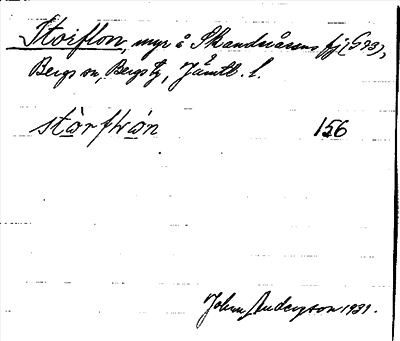 Storflon, myr å Skandsåsens fj (593),
Bergs sn, Bergs tg, Jämtl. l.
stòrflòn 156
Johan Anderzson 1931.